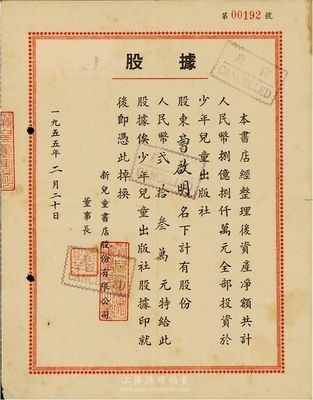 第 00192 號
股據
本書店經整理後資產淨額共計
人民幣捌億捌仟萬元全部投資於
少年兒童出版社
股東曾啟明名下計有股份
人民幣弍拾叁萬元特給此
股據俟少年兒童出版社股據印就
後即憑此掉換
新兒童書店股份有限公司
董事長
一九五五年二月二十日
CANCELLED
CANCELLED
上海陽明拍賣